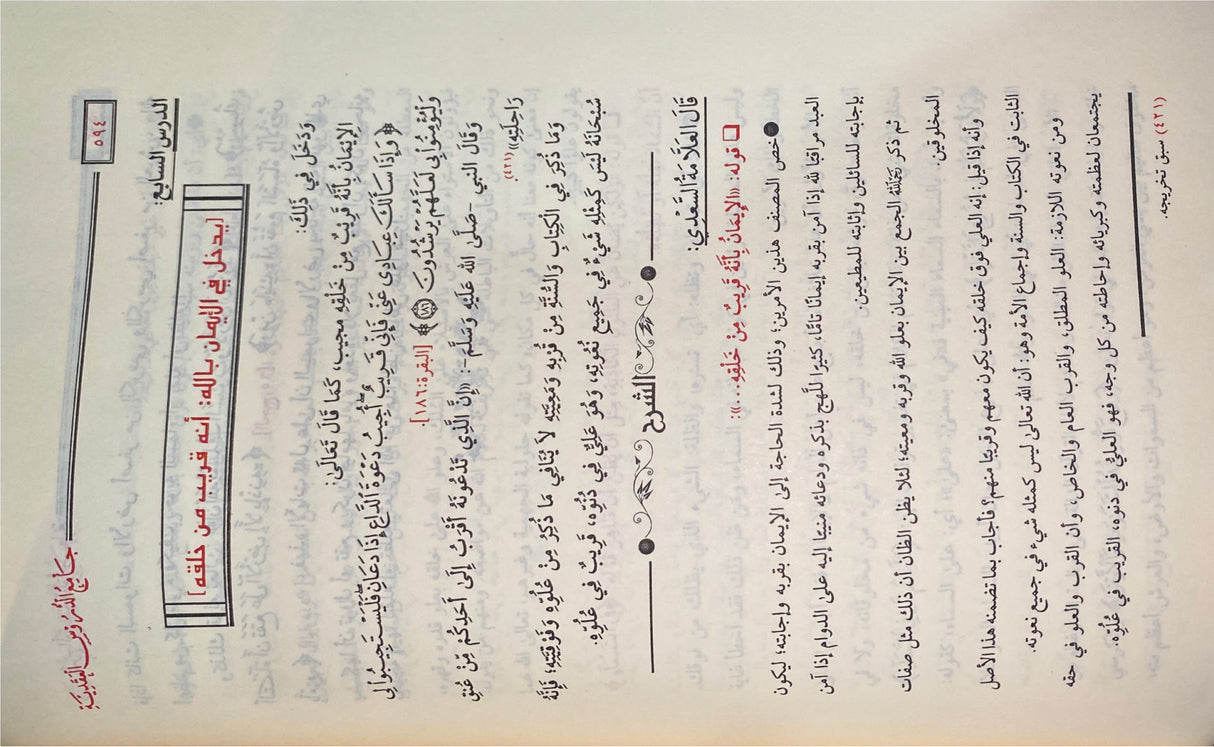 جَامِعُ الدُّرُوسِ العَقَدِيَّةِ
٥٩٤
الدرس السابع:
[يدخل في الإيمان بالله: أنه قريب من خلقه]
وَدَخَلَ فِي ذَلِكَ:
الإِيمَانُ بِأَنَّهُ قَرِيبٌ مِنْ خَلْقِهِ مجيب، كَمَا قَالَ تَعَالَىٰ:
﴿وَإِذَا سَأَلَكَ عِبَادِى عَنِّى فَإِنِّى قَرِيبٌ أُجِيبُ دَعْوَةَ ٱلدَّاعِ إِذَا دَعَانِ فَلْيَسْتَجِيبُوا۟ لِى
وَلْيُؤْمِنُوا۟ بِى لَعَلَّهُمْ يَرْشُدُونَ ١٨٦﴾ [البقرة: ١٨٦].
وَقَالَ النبي -صَلَّى الله عَلَيْهِ وَسَلَّمَ-: «إِنَّ الَّذِي تَدْعُونَهُ أَقْرَبُ إِلَى أَحَدِكُمْ مِنْ عُنِقِ
رَاحِلَتِهِ»(٤٢١)
وَمَا ذُكِرَ فِي الْكِتَابِ وَالسُّنَّةِ مِنْ قُرْبِهِ وَمَعِيَّتِهِ لَا يُنَافِي مَا ذُكِرَ مِنْ عُلُوِّهِ وَفَوْقِيَّتِهِ؛ فَإِنَّهُ
سُبْحَانَهُ لَيْسَ كَمِثْلِهِ شَيْءٌ فِي جَمِيعِ نُعُوتِهِ، وَهُوَ عَلِيٌّ فِي دُنُوِّه، قَرِيبٌ فِي عُلُوِّهِ.
الشرح
قَالَ العَلَّامَةُ السَّعْدِيُّ:
❑ قوله: «الإِيمَانُ بِأَنَّهُ قَرِيبٌ مِنْ خَلْقِهِ...»:
● خص المصنف هذين الأمرين؛ وذلك لشدة الحاجة إلى الإيمان بقربه وإجابته؛ ليكون
العبد مراقبًا لله إذا آمن بقربه إيمانًا تامًّا، كثيرَ اللَّهج بذكره ودعائه منيبًا إليه على الدوام إذا آمن
بإجابته للسائلين وإثابته للمطيعين
ثم ذكر رَحِمَهُ ٱللَّهُ الجمع بين الإيمان بعلو الله وقربه ومعيته؛ لئلا يظن الظان أن ذلك مثل صفات
المخلوقين.
وأنه إذا قيل: إنه العلي فوق خلقه كيف يكون معهم وقريبًا منهم؟ فأجاب بما تضمنه هذا الأصل
الثابت في الكتاب والسنة وإجماع الأمة وهو: أن الله تعالى ليس كمثله شيء في جميع نعوته.
ومن نعوته اللازمة: العلو المطلق، والقرب العام والخاص، وأن القرب والعلو في حقه
يجتمعان لعظمته وكبريائه وإحاطته من وكل وجه، فهو العليُّ في دنوه، القريب في عُلُوِّه.
(٤٢١) سبق تخريجه.